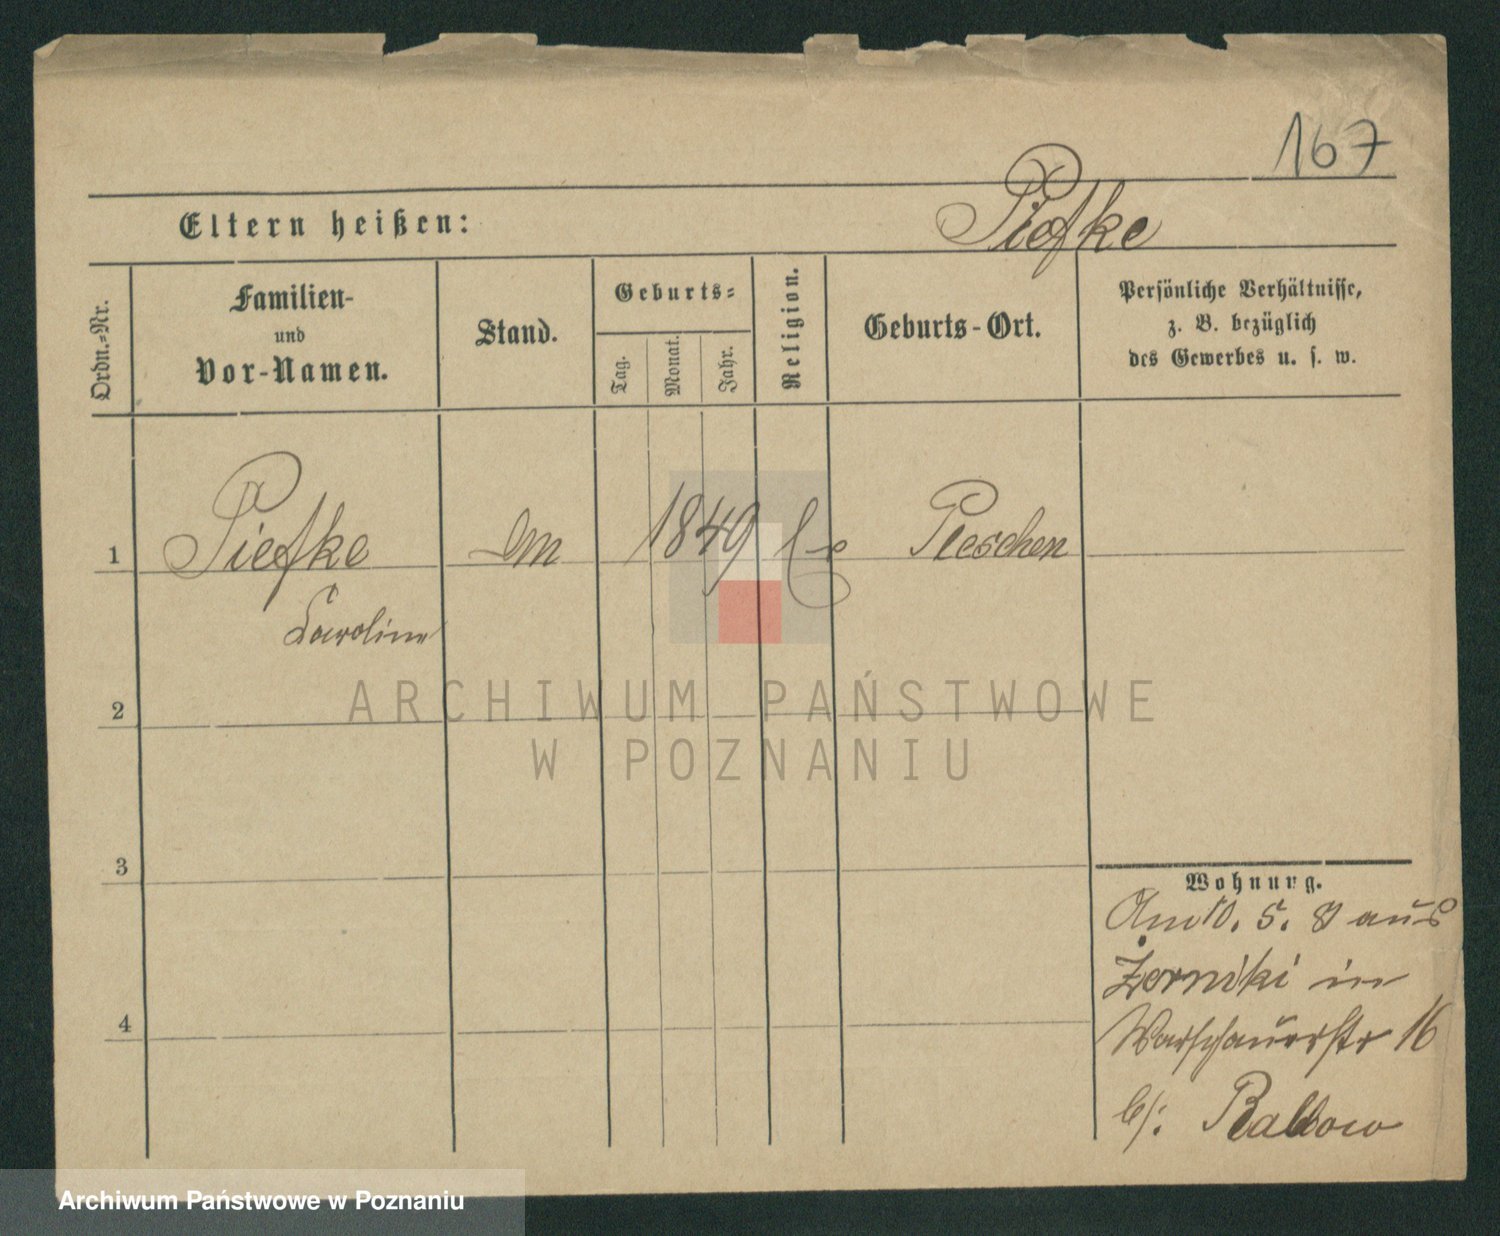 167
Eltern heißen: Piefke
Ordn.-Nr.
Familien-
und
Vor-Namen.
Stand.
Geburts-
Tag.
Monat.
Jahr.
Religion.
Geburts-Ort.
Persönliche Verhältnisse,
z. B. bezüglich
des Gewerbes u. s. w.
1 Piefke 1849 Pleschen
Caroline
2
3
4
Wohnung.
Am 10. 5. 8 aus
Żerniki in
Warschauerstr 16
b/:
ARCHIWUM PAŃSTWOWE
W POZNANIU
Archiwum Państwowe w Poznaniu